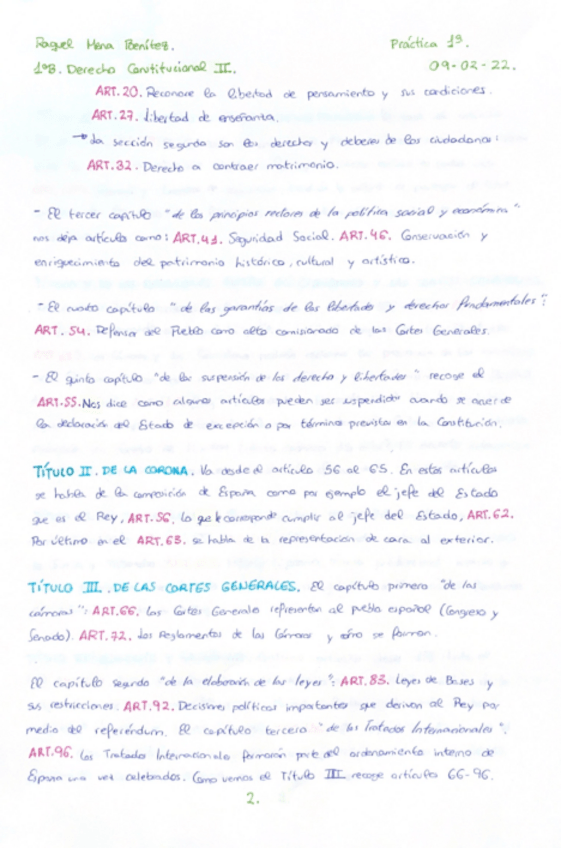 Raquel Mena Benítez. Práctica 1ª.
1ºB. Derecho Constitucional II. 09-02-22.
ART. 20. Reconoce la libertad de pensamiento y sus condiciones.
ART. 27. Libertad de enseñanza.
→ La sección segunda son los derechos y deberes de los ciudadanos:
ART. 32. Derecho a contraer matrimonio.
- El tercer capítulo "de los principios rectores de la política social y económica"
nos deja artículos como: ART. 41. Seguridad Social. ART. 46. Conservación y
enriquecimiento del patrimonio histórico, cultural y artístico.
- El cuarto capítulo "de las garantías de las libertades y derechos fundamentales":
ART. 54. Defensor del Pueblo como alto comisionado de las Cortes Generales.
- El quinto capítulo "de la suspensión de los derechos y libertades" recoge el
ART. 55. Nos dice como algunos artículos pueden ser suspendidos cuando se acuerde
la declaración del Estado de excepción o por términos previstos en la Constitución.
TÍTULO II. DE LA CORONA. Va desde el artículo 56 al 65. En estos artículos
se habla de la composición de España como por ejemplo el jefe del Estado
que es el Rey, ART. 56, lo que le corresponde cumplir al jefe del Estado, ART. 62.
Por último en el ART. 63. se habla de la representación de cara al exterior.
TÍTULO III. DE LAS CORTES GENERALES. El capítulo primero "de las
cámaras": ART. 66. Las Cortes Generales representan al pueblo español (Congreso y
Senado). ART. 72. Los Reglamentos de las Cámaras y cómo se forman.
El capítulo segundo "de la elaboración de las leyes": ART. 83. Leyes de Bases y
sus restricciones. ART. 92. Decisiones políticas importantes que derivan al Rey por
medio del referéndum. El capítulo tercero "de los Tratados Internacionales".
ART. 96. Los Tratados Internacionales formarán parte del ordenamiento interno de
España una vez celebrados. Como vemos el Título III recoge artículos 66-96.
2.